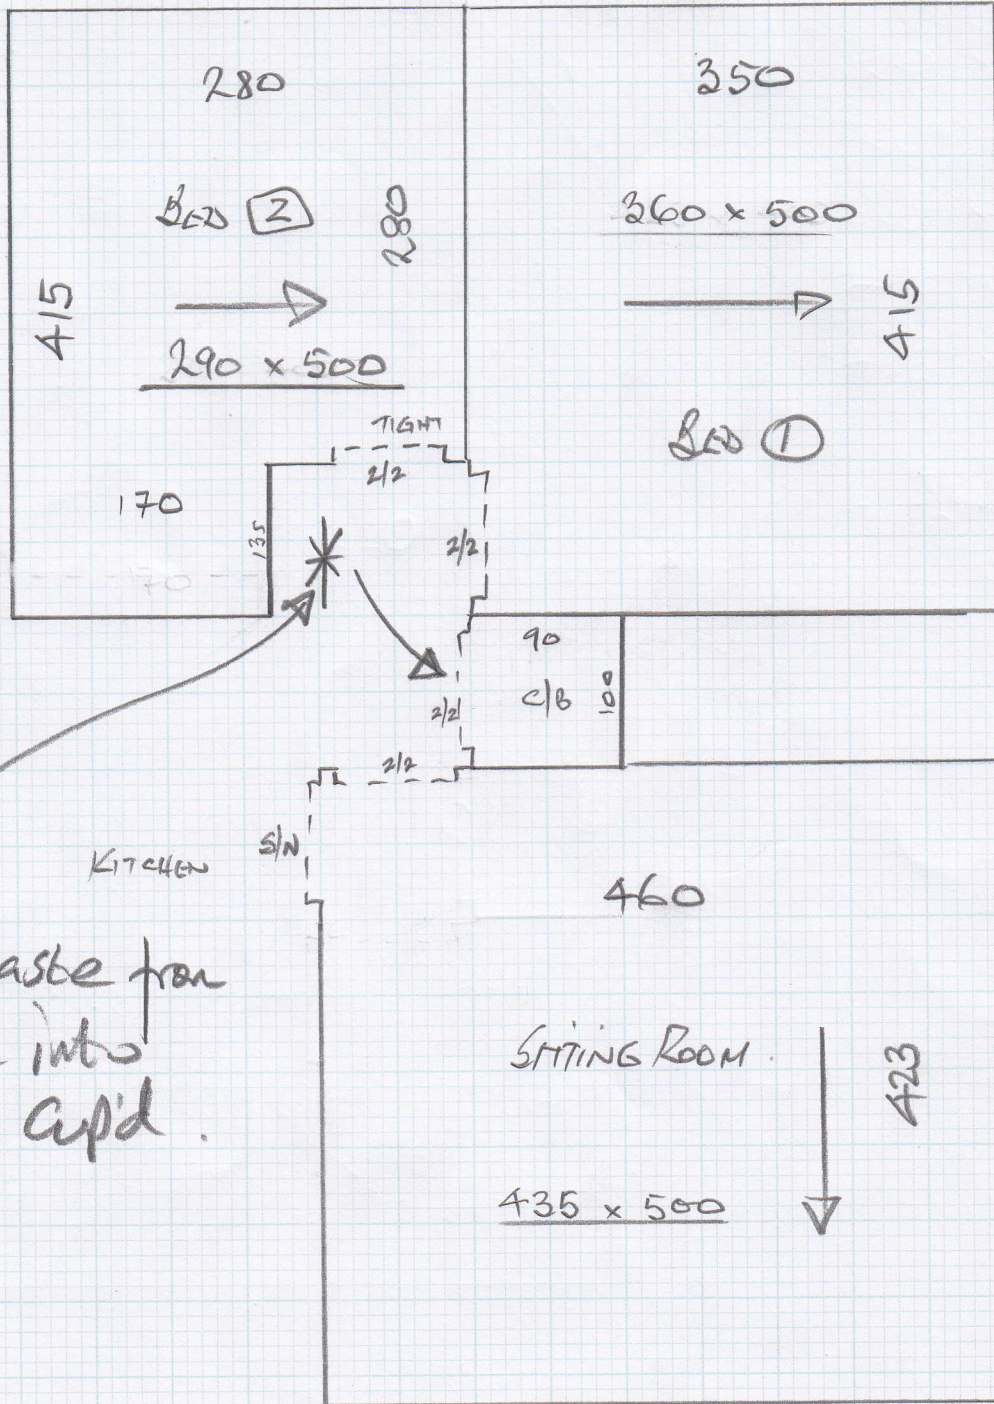 280
350
BED 2
280
360 x 500
415
415
290 x 500
BED 1
TIGHT
2/2
170
135
2/2
70
90
C/B
100
2/2
2/2
S/N
KITCHEN
460
aste from
into
Cup'd.
SITTING ROOM.
423
435 x 500